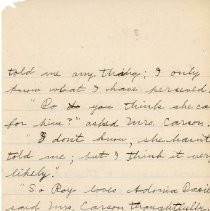 told me any thing; I only
know what I have perseved.
"Do you think she ca
for him?" asked Mrs. Carson.
"I don't know, she hasn't
told me; but I think it very
likely."
"So Roy loves Adonia Davie
said Mrs. Carson thoughtfully.